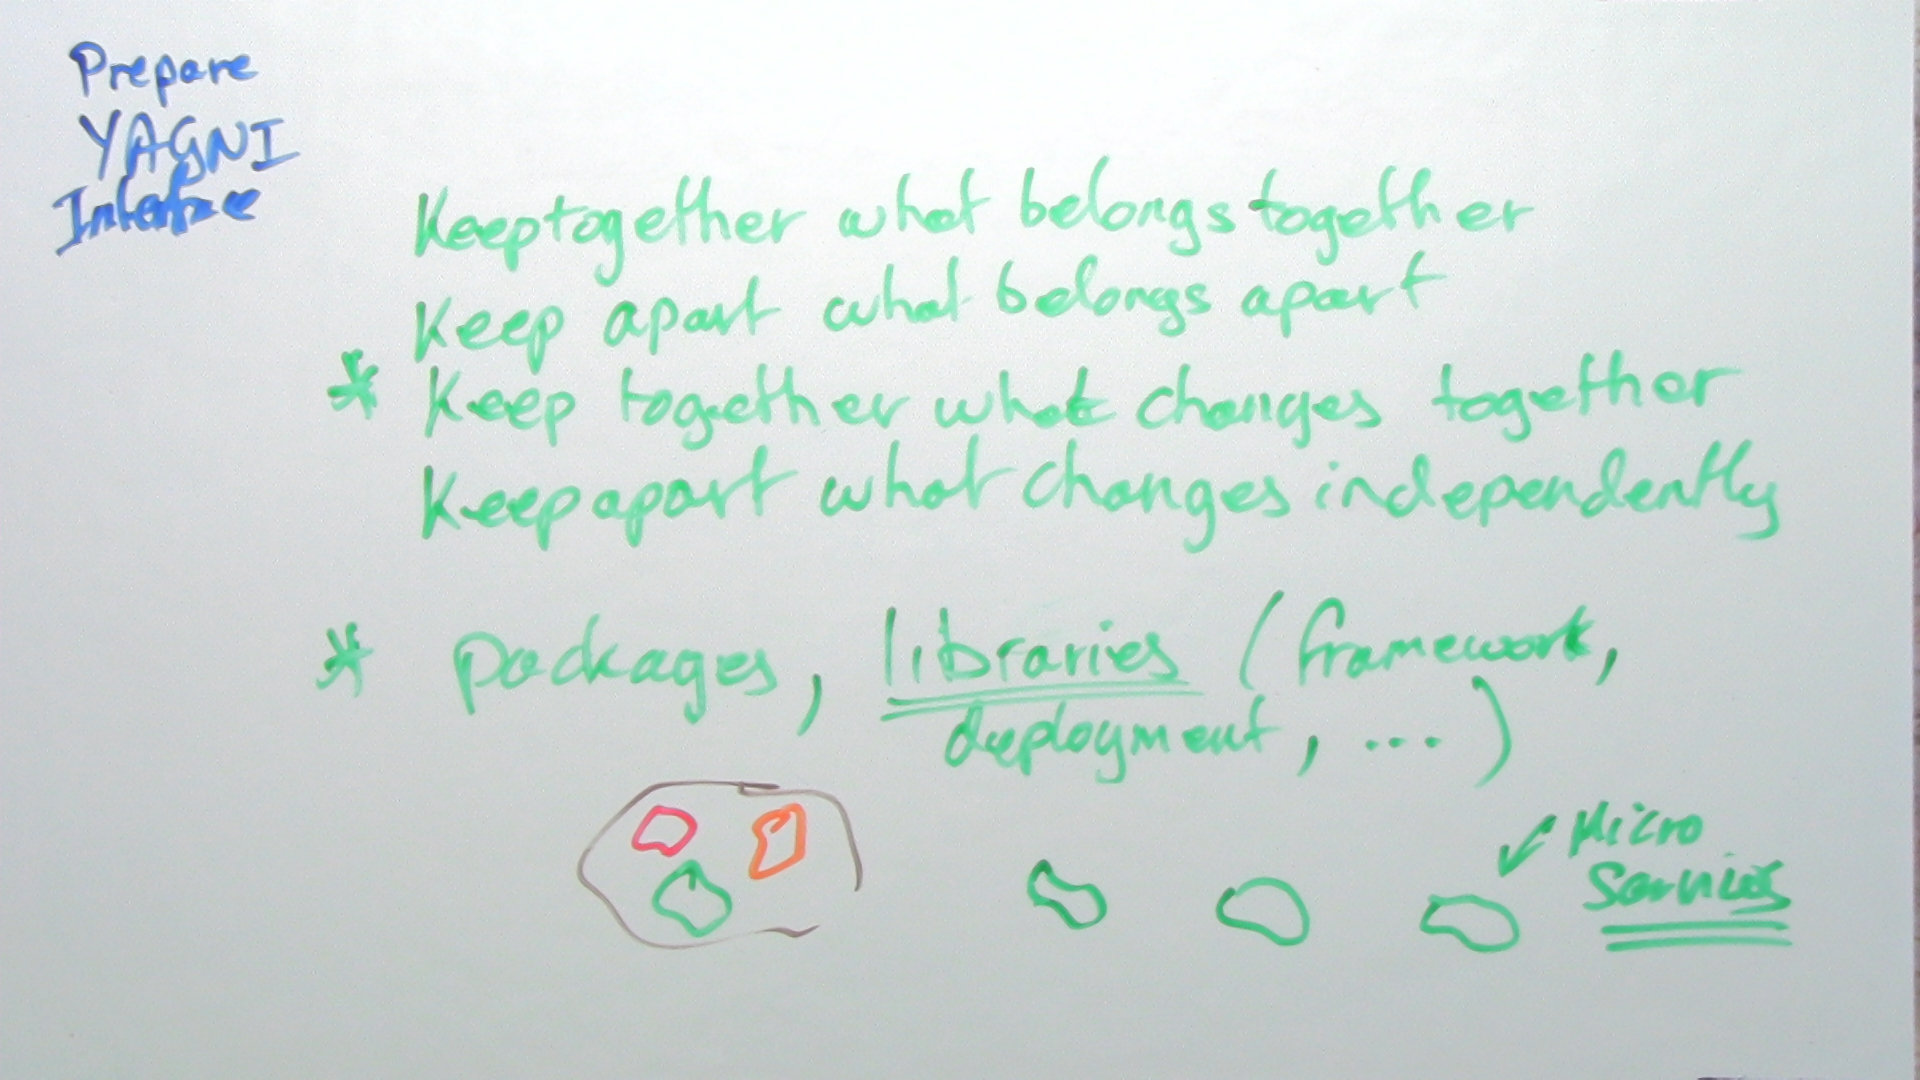 Prepare
YAGNI
Interface
Keep together what belongs together
Keep apart what belongs apart
* Keep together what changes together
Keep apart what changes independently
* packages, libraries (framework,
deployment, ...)
Micro
Services